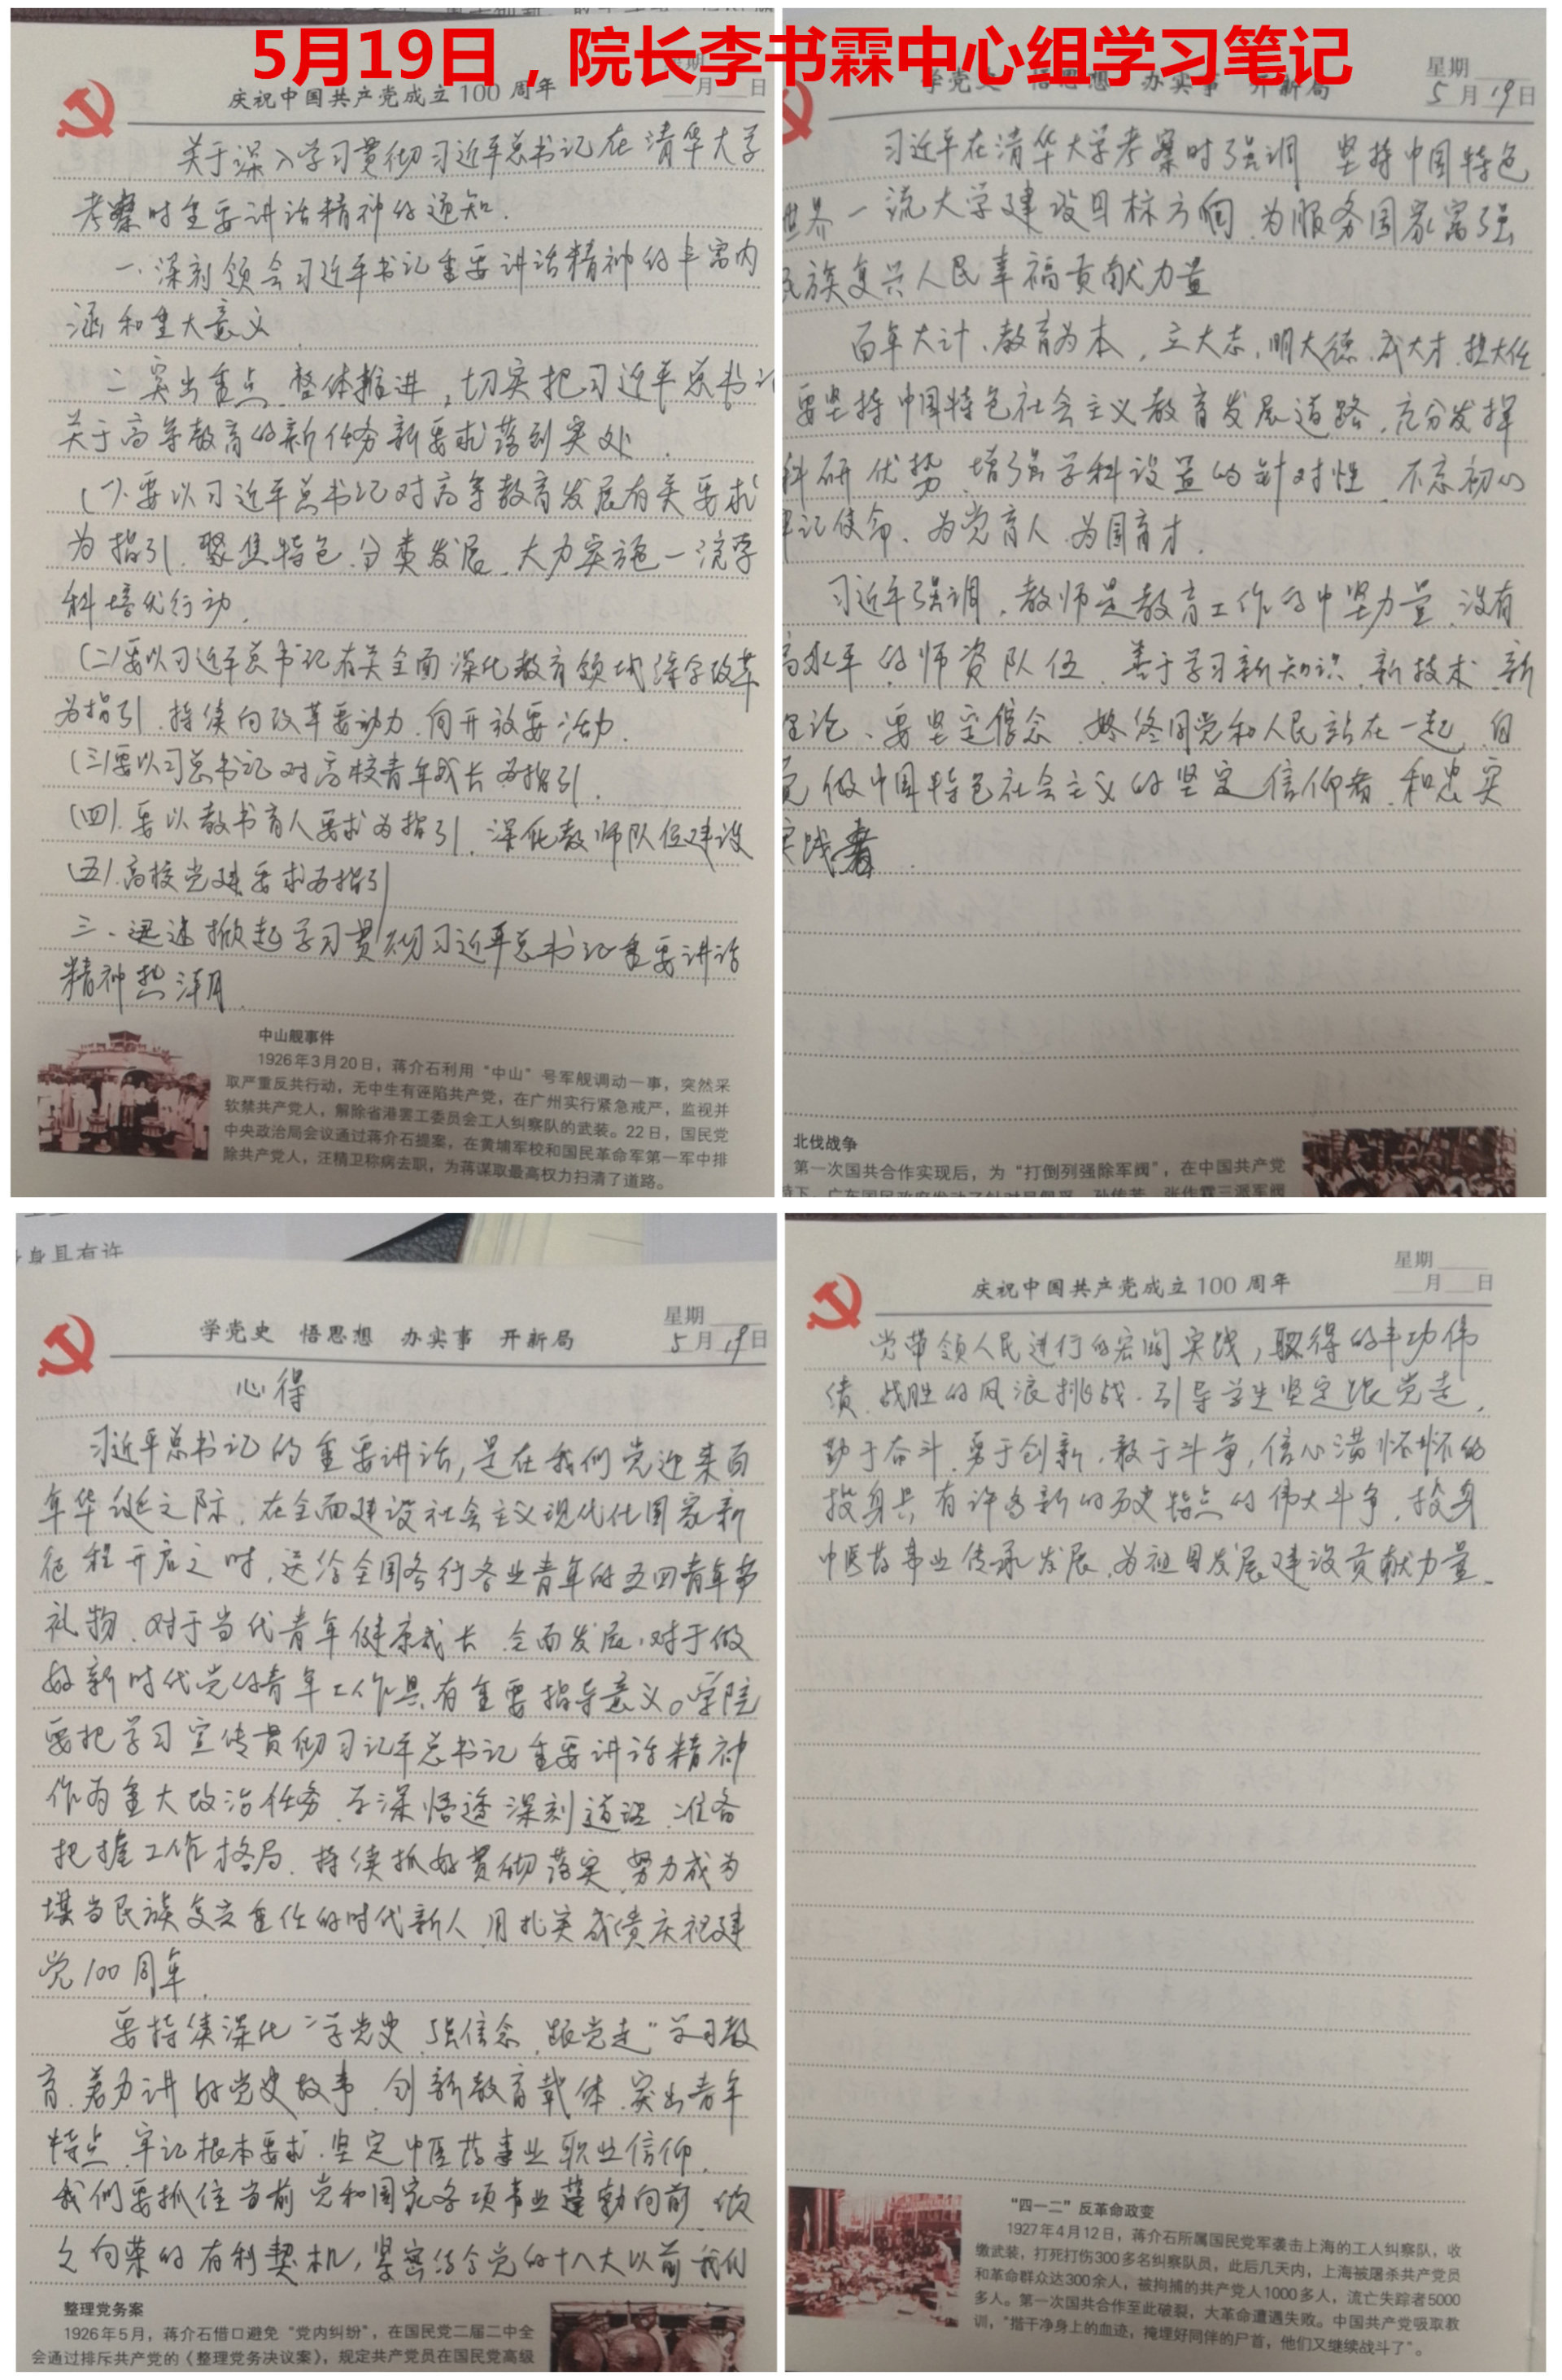 5月19日，院长李书霖中心组学习笔记
庆祝中国共产党成立 100 周年
星期
月 日
关于深入学习贯彻习近平总书记在清华大学
考察时重要讲话精神的通知.
一、深刻领会习近平书记重要讲话精神的丰富内
涵和重大意义
二 突出重点、整体推进，切实把习近平总书记
关于高等教育的新任务新要求落到实处.
(一).要以习近平总书记对高等教育发展有关要求
为指引.聚焦特色.分类发展.大力实施一流学
科培优行动.
(二)要以习近平总书记有关全面深化教育领域综合改革
为指引.持续向改革要动力.向开放要活力.
(三)要以习总书记对高校青年成长为指引.
(四).要以教书育人要求为指引.深化教师队伍建设
(五).高校党建要求为指引
三、迅速掀起学习贯彻习近平总书记重要讲话
精神热潮.
中山舰事件
1926年3月20日，蒋介石利用“中山”号军舰调动一事，突然采
取严重反共行动，无中生有诬陷共产党，在广州实行紧急戒严，监视并
软禁共产党人，解除省港罢工委员会工人纠察队的武装。22日，国民党
中央政治局会议通过蒋介石提案，在黄埔军校和国民革命军第一军中排
除共产党人，汪精卫称病去职，为蒋谋取最高权力扫清了道路。
学党史 悟思想 办实事 开新局
星期
5月19日
习近平在清华大学考察时强调 坚持中国特色
世界一流大学建设目标方向.为服务国家富强
民族复兴人民幸福贡献力量
百年大计、教育为本，立大志，明大德.成大才.担大任.
要坚持中国特色社会主义教育发展道路.充分发挥
科研优势.增强学科设置的针对性.不忘初心
牢记使命、为党育人.为国育才.
习近平强调.教师是教育工作的中坚力量.没有
高水平的师资队伍.善于学习新知识.新技术.新
理论、要坚定信念.始终同党和人民站在一起.自
觉做中国特色社会主义的坚定信仰者.和忠实
实践者.
北伐战争
第一次国共合作实现后，为“打倒列强除军阀”，在中国共产党
身具有许
学党史 悟思想 办实事 开新局
星期
5月19日
心得
习近平总书记的重要讲话,是在我们党迎来百
年华诞之际.在全面建设社会主义现代化国家新
征程开启之时.送给全国各行各业青年的五四青年节
礼物.对于当代青年健康成长.全面发展.对于做
好新时代党的青年工作具有重要指导意义。学院
要把学习宣传贯彻习记平总书记重要讲话精神
作为重大政治任务.学深悟透深刻道理.准备
把握工作格局.持续抓好贯彻落实.努力成为
堪当民族复兴重任的时代新人.用扎实成绩庆祝建
党100周年.
要持续深化“学党史.强信念.跟党走”学习教
育.着力讲好党史故事.创新教育载体.突出青年
特点.牢记根本要求.坚定中医药事业职业信仰.
我们要抓住当前党和国家各项事业蓬勃向前.欣
欣向荣的有利契机,紧密结合党的十八大以前我们
整理党务案
1926年5月，蒋介石借口避免“党内纠纷”，在国民党二届二中全
会通过排斥共产党的《整理党务决议案》，规定共产党员在国民党高级
庆祝中国共产党成立 100 周年
星期
月 日
党带领人民进行的宏阔实践,取得的丰功伟
绩.战胜的风浪挑战.引导学生坚定跟党走.
勤于奋斗.勇于创新.敢于斗争,信心满怀怀的
投身具有许多新的历史特点的伟大斗争.投身
中医药事业传承发展.为祖国发展建设贡献力量.
“四一二”反革命政变
1927年4月12日，蒋介石所属国民党军袭击上海的工人纠察队，收
缴武装，打死打伤300多名纠察队员，此后几天内，上海被屠杀共产党员
和革命群众达300余人，被拘捕的共产党人1000多人，流亡失踪者5000
多人。第一次国共合作至此破裂，大革命遭遇失败。中国共产党吸取教
训，“揩干净身上的血迹，掩埋好同伴的尸首，他们又继续战斗了”。